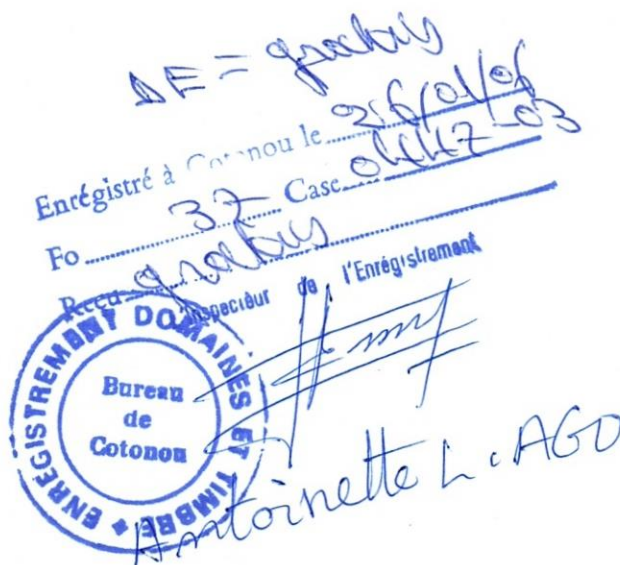 DE = gratis
Enrégistré à Cotonou le 26/01/06
Fo 37 Case 0447-03
Reçu gratis
Inspecteur de l'Enrégistrement
ENREGISTREMENT DOMAINES ET TIMBRE
Bureau
de
Cotonou
Antoinette L. AGO